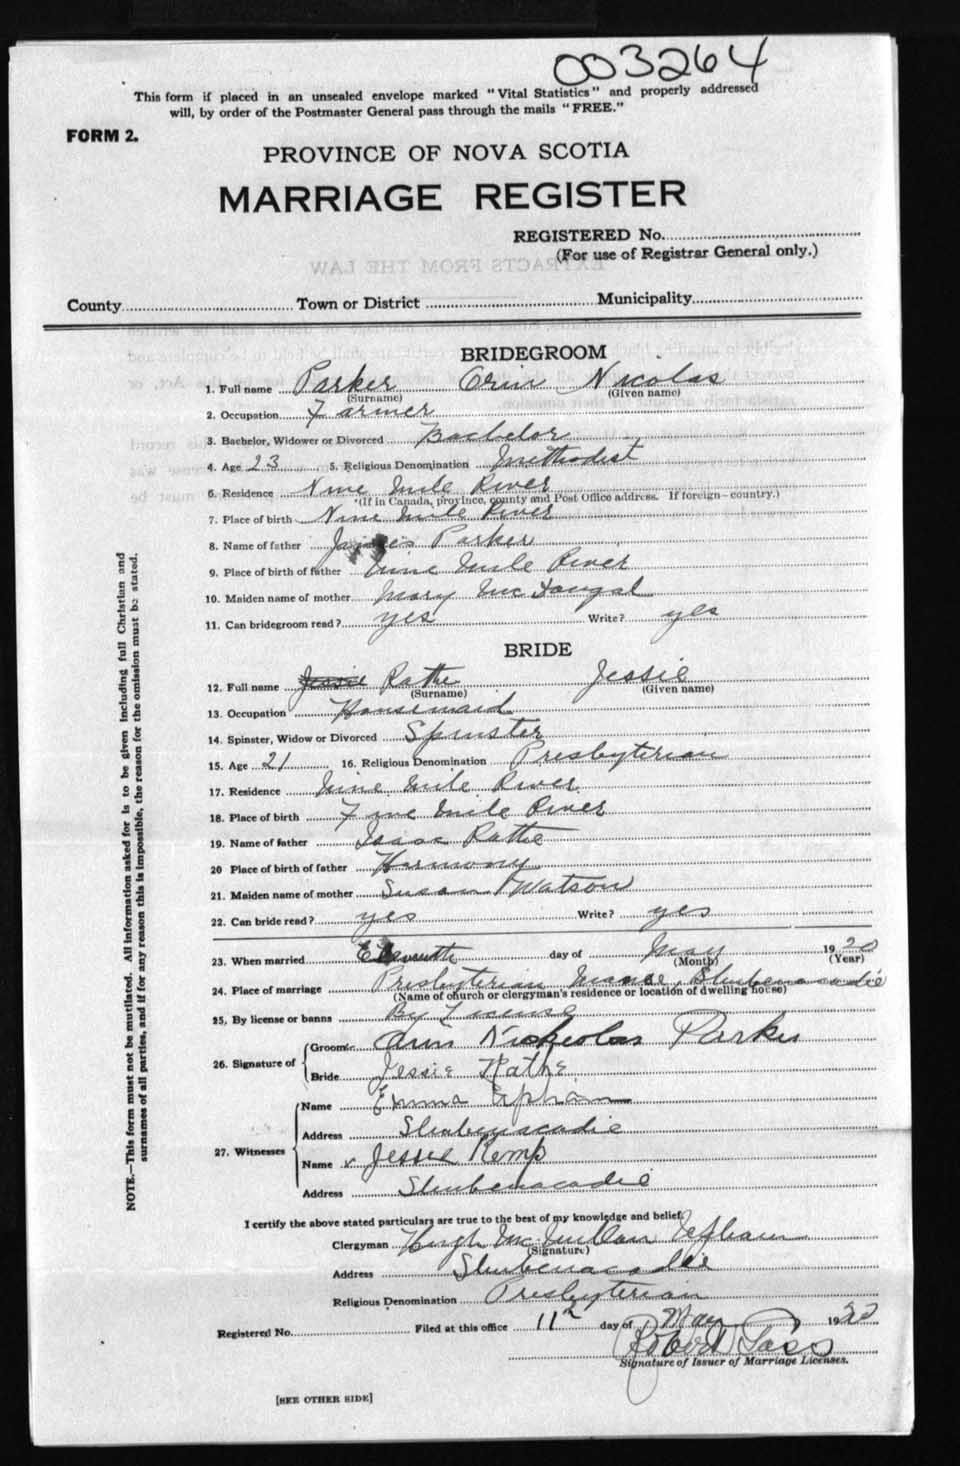 003264
This form if placed in an unsealed envelope marked "Vital Statistics" and properly addressed
will, by order of the Postmaster General pass through the mails "FREE."
FORM 2.
PROVINCE OF NOVA SCOTIA
MARRIAGE REGISTER
REGISTERED No.
(For use of Registrar General only.)
EXTRACTS FROM THE LAW
County Town or District Municipality
BRIDEGROOM
1. Full name Parker Orin Nicolas
(Surname) (Given name)
2. Occupation Farmer
3. Bachelor, Widower or Divorced Bachelor
4. Age 23 5. Religious Denomination Methodist
6. Residence Nine Mile River
(If in Canada, province, county and Post Office address. If foreign—country.)
7. Place of birth Nine Mile River
8. Name of father James Parker
9. Place of birth of father Nine Mile River
10. Maiden name of mother Mary McDougal
11. Can bridegroom read? yes Write? yes
BRIDE
12. Full name Jessie Rathe Jessie
(Surname) (Given name)
13. Occupation Housemaid
14. Spinster, Widow or Divorced Spinster
15. Age 21 16. Religious Denomination Presbyterian
17. Residence Nine Mile River
18. Place of birth Five Mile River
19. Name of father Isaac Rathe
20 Place of birth of father Harmony
21. Maiden name of mother Susan Watson
22. Can bride read? yes Write? yes
23. When married Eleventh day of May 1920
(Month) (Year)
24. Place of marriage Presbyterian Manse, Shubenacadie
(Name of church or clergyman's residence or location of dwelling house)
25. By license or banns By License
26. Signature of Groom Orin Nickolas Parker
Bride Jessie Rathe
27. Witnesses Name Emma
Address Shubenacadie
Name Jessie Kemp
Address Shubenacadie
I certify the above stated particulars are true to the best of my knowledge and belief.
Clergyman Hugh McMillan Upham
(Signature)
Address Shubenacadie
Religious Denomination Presbyterian
Registered No. Filed at this office 11th day of May 1920
Robert
Signature of Issuer of Marriage Licenses.
[SEE OTHER SIDE]
NOTE.—This form must not be mutilated. All information asked for is to be given including full Christian and
surnames of all parties, and if for any reason this is impossible, the reason for the omission must be stated.